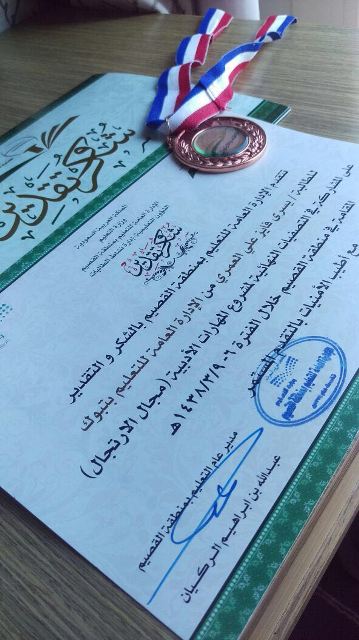 شكر وتقدير
المملكة العربية السعودية
وزارة التعليم
الإدارة العامة للتعليم بمنطقة القصيم
شكر وتقدير
تتقدم الإدارة العامة للتعليم بمنطقة القصيم بالشكر و التقدير
للطالبة / يسرى فايز علي العمري من الإدارة العامة للتعليم بتبوك
على المشاركة في التصفيات النهائية لمشروع المهارات الأدبية (مجال الارتجال)
المقامة في منطقة القصيم خلال الفترة ٦-٩/٣/١٤٣٨هـ
مع أطيب الأمنيات بالتقدم المستمر
مدير عام التعليم بمنطقة القصيم
عبدالله بن إبراهيم الركيان